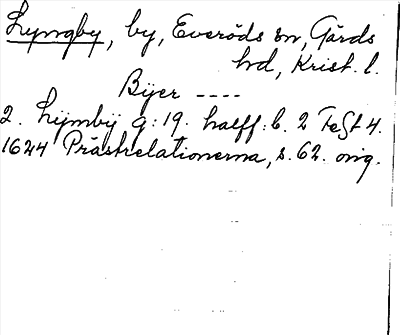 Lyngby, by, Everöds sn, Gärds
hd, Krist. l.
Bijer ----
2. Lijmbij g: 19. halff: b. 2 Te§t 4.
1624 Prästrelationerna, s. 62. orig.